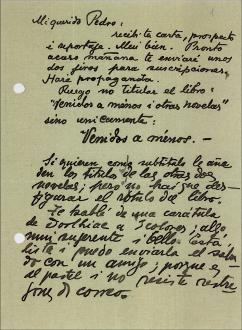 Mi querido Pedro:
recibí tu carta, prospecto
i reportaje. Mui bien. Pronto
acaso mañana te enviaré unos
dos jiros para suscripciones.
Haré propaganda.
Ruego no titular el libro:
"Venidos a menos i otras novelas"
sino unicamente:
Venidos a menos.—
Si quieren como subtítulo le aña
den los títulos de las otras dos
novelas; pero no hai que des-
figurar el rótulo del libro.
Te hablé de una carátula
de a 3 colores, algo
mui sujerente i bello. Está
lista i puedo enviarla el sába
do con un amigo, porque es
al pastel i no resiste
de correo